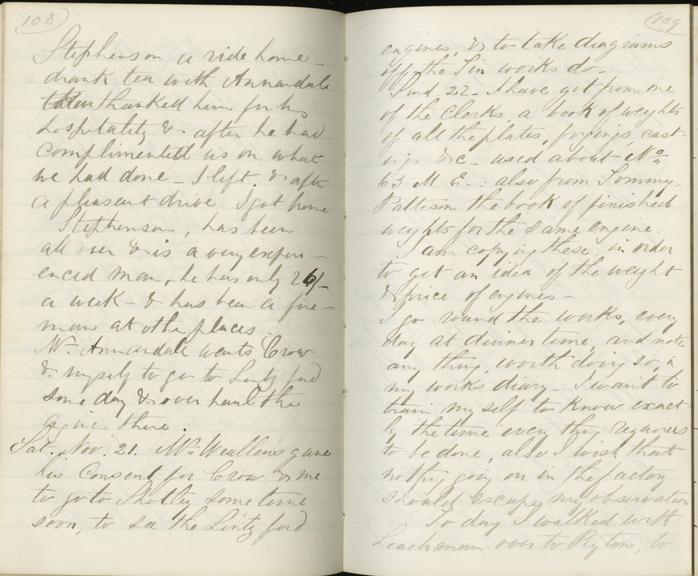 108
Stephenson a ride home -
drank tea with Annandale
thanked him for his
hospitality & after he had
complimented us on what
we had done - I left & after
a pleasant drive I got home
Stephenson, has been
all over & is a very experi-
enced man, he has only 26/-
a week - & has been a fore-
man at other places.
Mr. Annandale wants Crow
& myself to go to Lintzford
some day & over haul the
engines there.
Sat. Nov. 21. Mr. Weallens gave
his consent for Crow & me
to go to Shotley some time
soon, to see the Lintzford
109
engines, & to take diagrams
off the Tin works do -
Sund. 22. I have got from one
of the Clerks, a book of weights
of all the plates, forgings, cast-
ings &c. used about No.
63 M. E. : also from Tommy
Pattison the book of finished
weights for the same engine.
I am copying these, in order
to get an idea of the weight
& price of engines -
I go round the works, every
day at dinner time, and note
any thing, worth doing so, in
my works diary - I want to
train my self to know exact-
ly the time every thing requires
to be done, also I wish that
nothing going on in the factory
should escape my observation
To day I walked with
Leachman over to Ryton, to